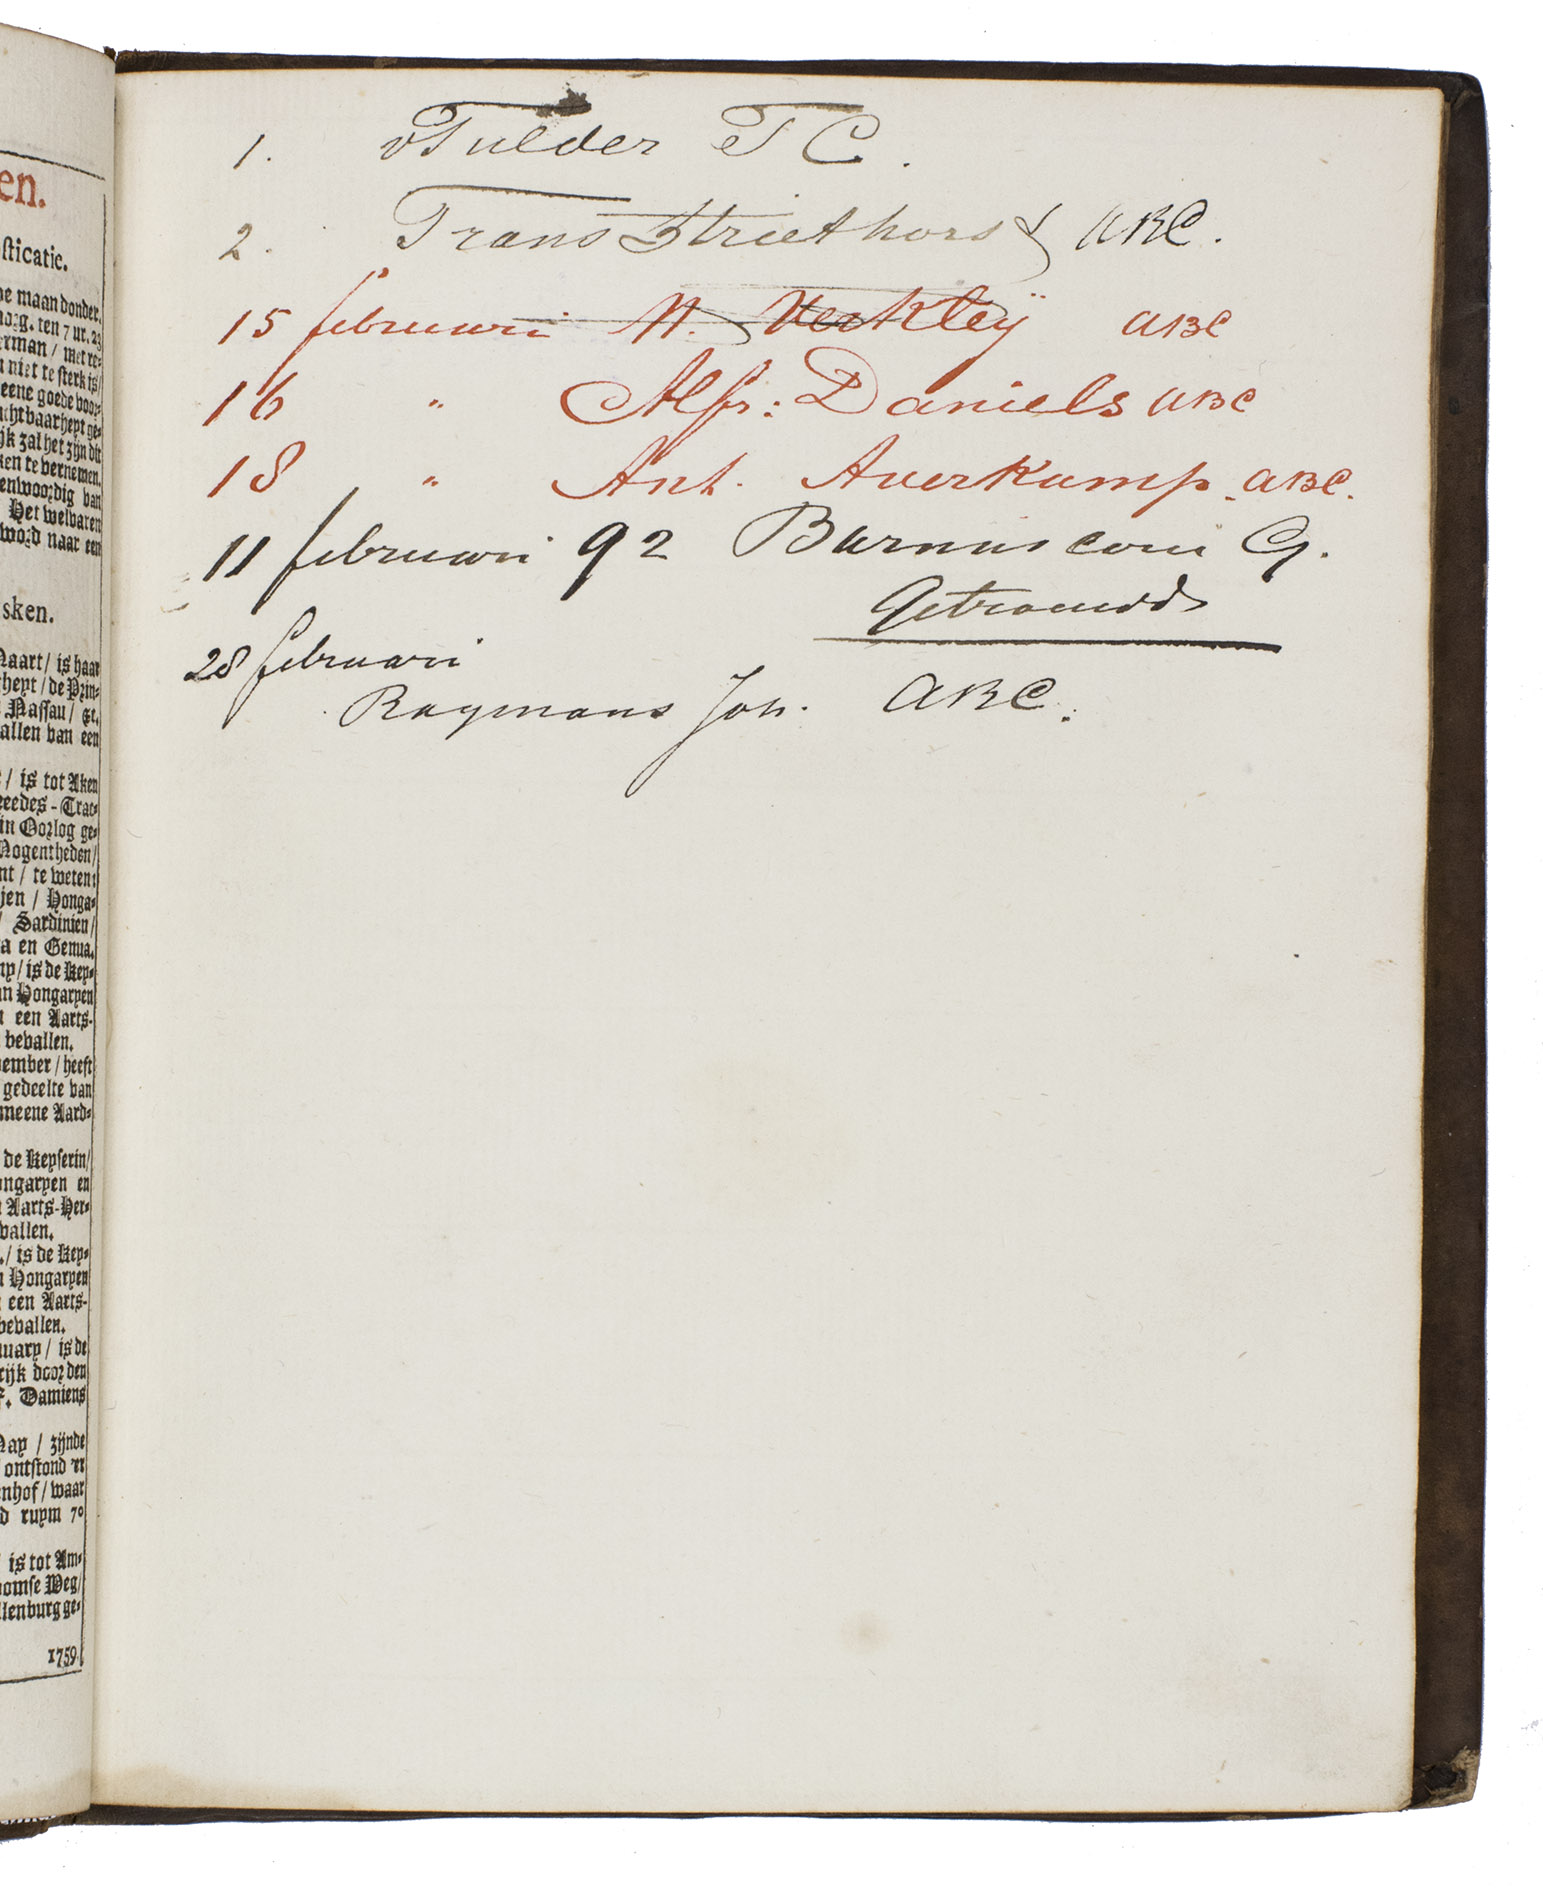 en.
sticatie.
de maan donder.
marg. ten 7 ur. 23
erman / met re-
n niet te sterk is/
eene goede voor-
uchtbaarheyt ge-
ijk zal het zijn dit
ken te vernemen.
enwoordig van
Het welvaren
word naar een
sken.
Naart / is haar
heyt / de Prin-
Nassau / &c.
allen van een
/ is tot Aken
reedes-Trac-
in Oorlog ge-
Mogentheden/
nt / te weten:
jen / Honga-
/ Sardinien/
a en Genua.
ny / is de Key-
an Hongaryen
een Aarts-
bevallen.
ember / heeft
gedeelte van
meene Aard-
de Keyserin/
ongaryen en
Aarts-Her-
vallen.
./ is de Key-
n Hongaryen
een Aarts-
bevallen.
nuary / is de
rijk door den
F. Damiens
May / zijnde
ontstond 'er
enhof / waar
d ruym 70
is tot Am-
omse Weg/
llenburg ge-
1759.
1. vTulder T C.
2. Frans Striethorst ABC.
15 februari N. Verkleÿ ABC
16 " Alfr: Daniels ABC
18 " Ant. Averkamp. ABC.
11 februari 92 Barnasconi G.
28 februari
Raymans Joh. ABC.